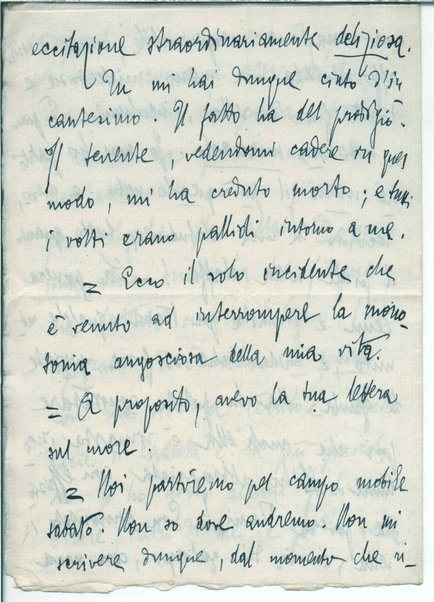 eccitazione straordinariamente deliziosa.
Tu mi hai dunque cinto d'in
cantesimo. Il fatto ha del prodigio.
Il tenente, vedendomi cadere in quel
modo mi ha creduto morto; e tutti
i volti erano pallidi intorno a me.
= Ecco il solo incidente che
è venuto ad interrompere la mono-
tonia angosciosa della mia vita.
= A proposito, avevo la tua lettera
sul cuore.
= Noi partiremo pel campo mobile
sabato. Non so dove andremo. Non mi
scrivere dunque, dal momento che ri-